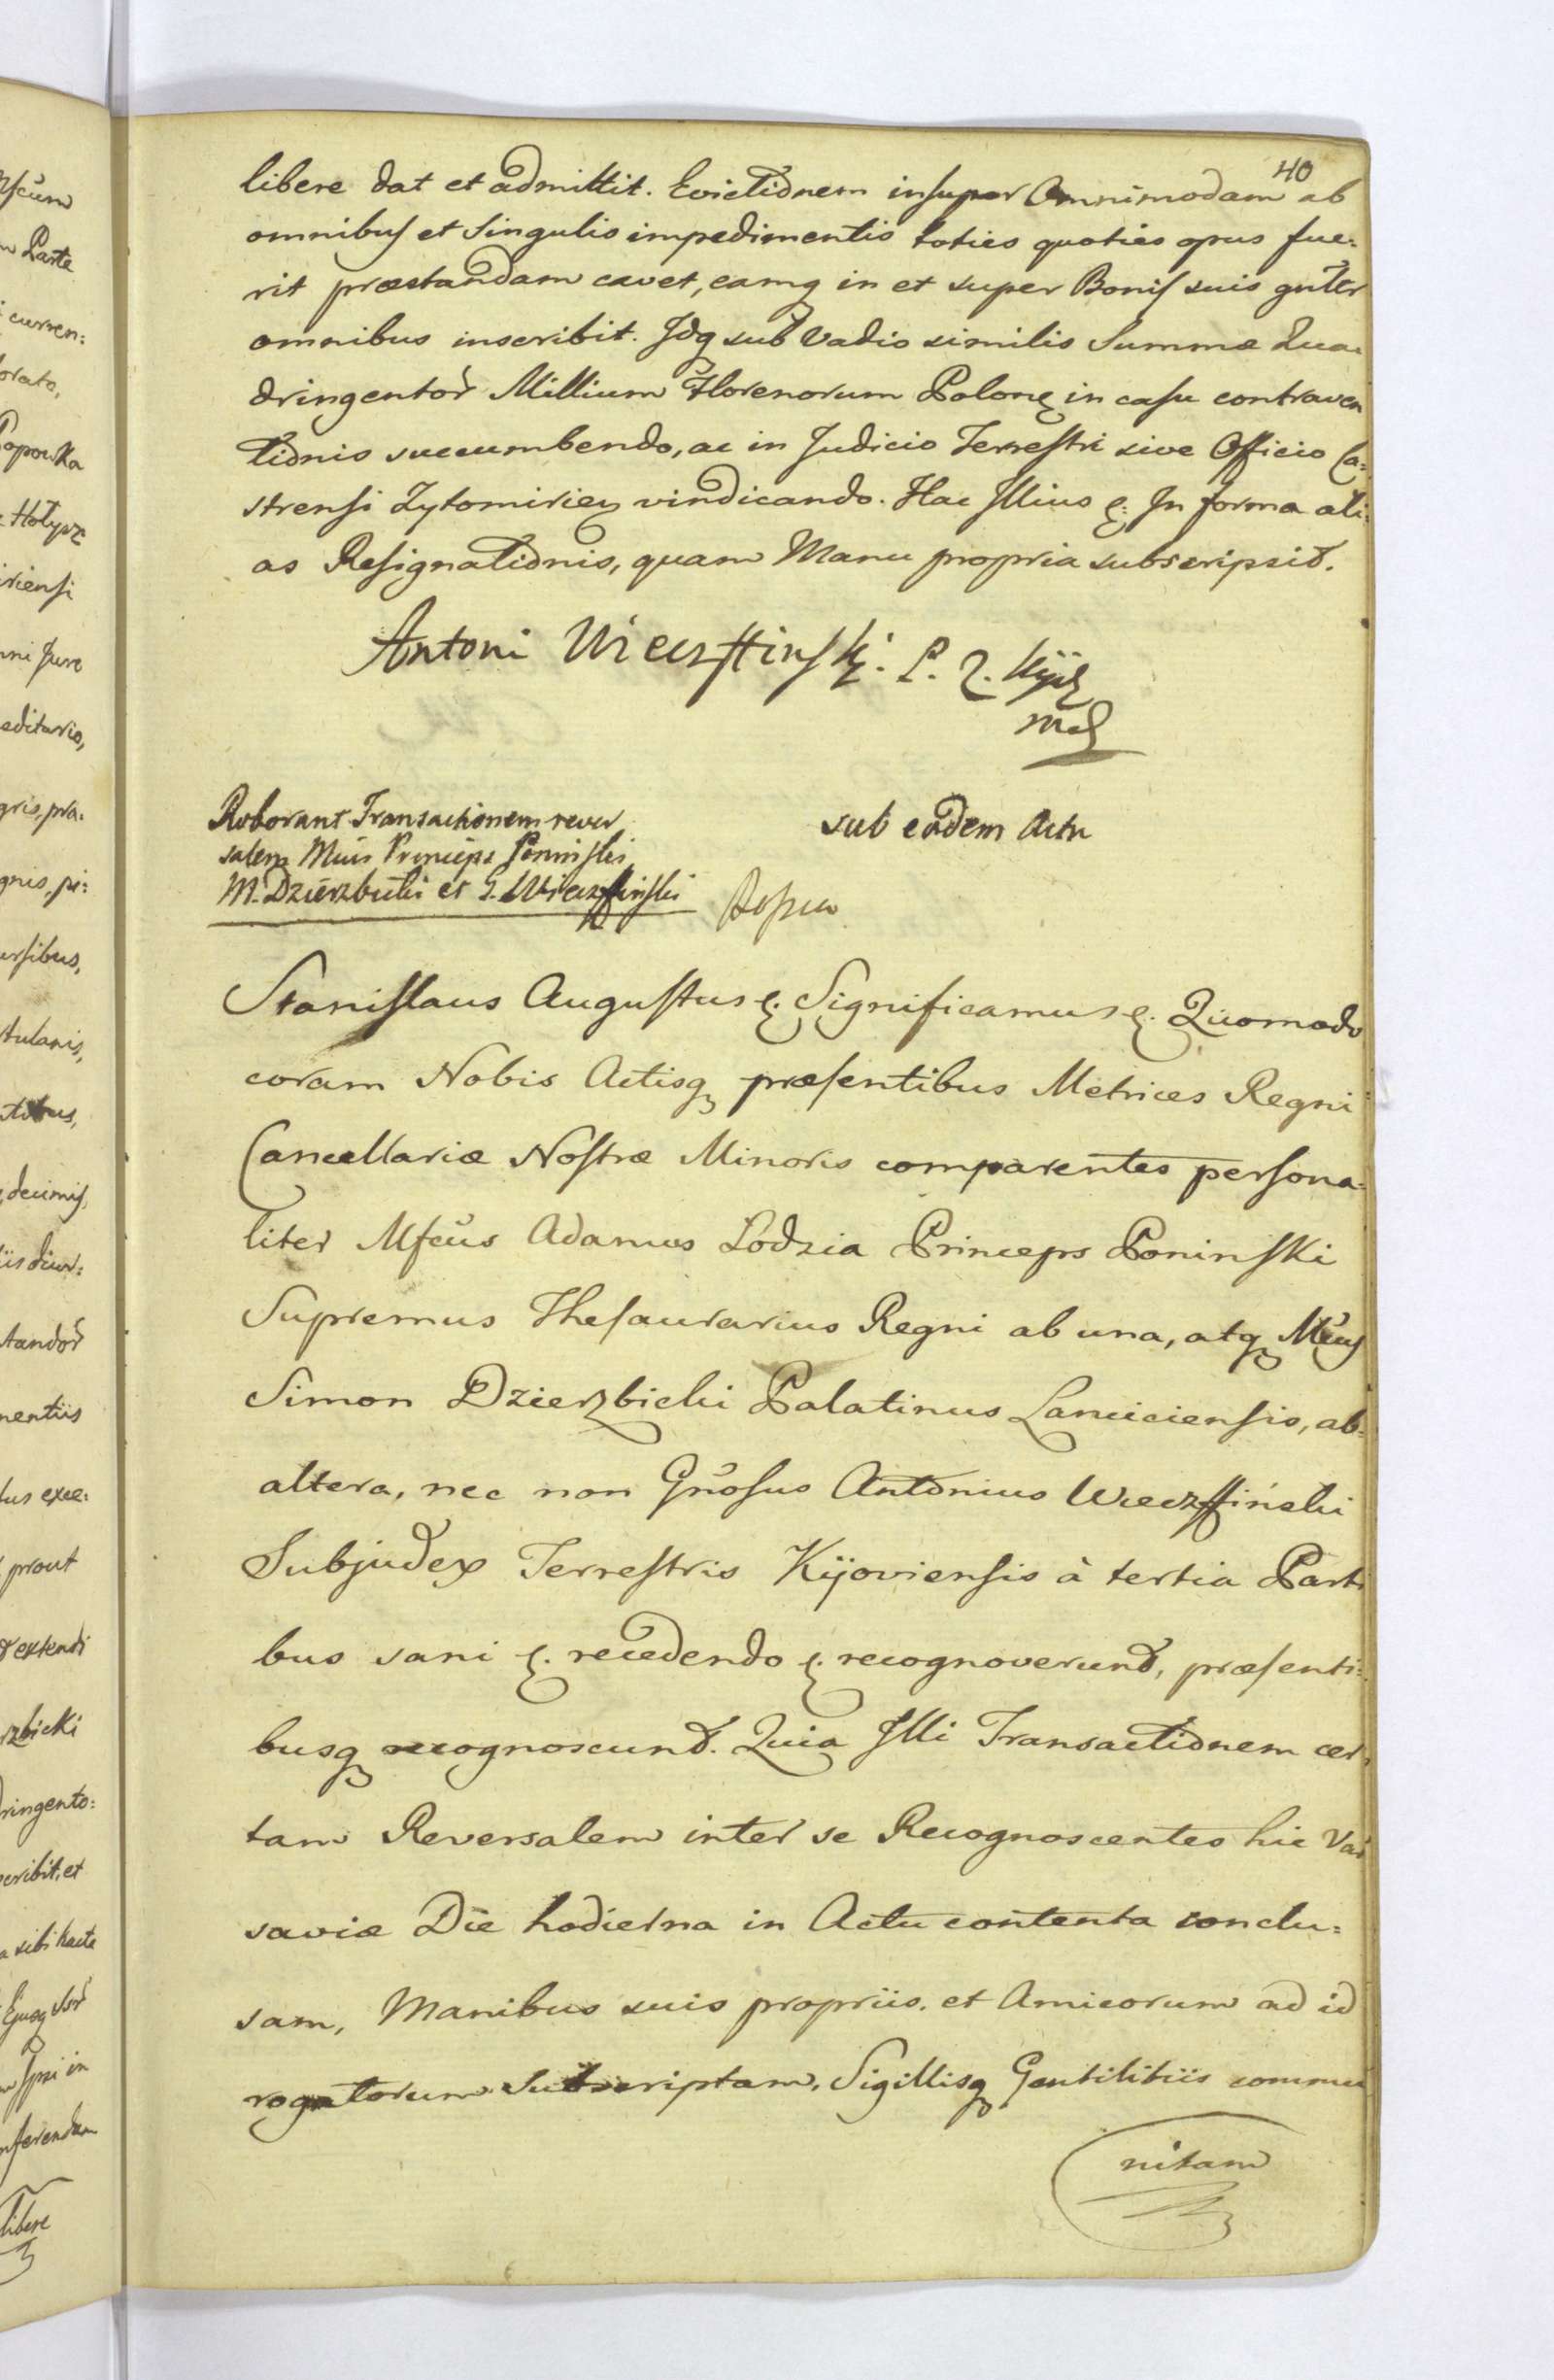 40
libere dat et admittit. Evictionem insuper Omnimodam ab
omnibus et singulis impedimentis toties quoties opus fue:
rit præstandam cavet, eamq in et super Bonis suis gnter
omnibus inscribit. Idq sub Vadio similis Summæ Qua:
dringentor Millium Florenorum Polon in casu contraven
tionis succumbendo, ac in Judicio Terrestri sive Officio Ca:
strensi Zytomirien vindicando. Hac Illius &: In forma ali:
as Resignationis, quam Manu propria subscripsit.
Antoni Wieczffinski. P. Z. Kijo
mp
Roborant Transactionem rever
salem Mcus Princeps Poninski
M. Dzierzbicki et G. Wieczffinski
sub eodem Actu
Stanislaus Augustus &. Significamus &. Quomodo
coram Nobis Actisq præsentibus Metrices Regni
Cancellariæ Nostræ Minoris comparentes persona:
liter Mfcus Adamus Lodzia Princeps Poninski
Supremus Thesaurarius Regni ab una, atq Mcus
Simon Dzierzbicki Palatinus Lanciciensis, ab
altera, nec non Gnosus Antonius Wieczffiński
Subjudex Terrestris Kijoviensis à tertia Parti
bus sani &. recedendo &. recognoverunt, præsenti:
busq recognoscunt. Quia Illi Transactionem cer
tam Reversalem inter se Recognoscentes hic Var
saviæ Die hodierna in Actu contenta conclu:
sam, Manibus suis propriis, et Amicorum ad id
rogatorum subscriptam, Sigillisq Gentilitiis commu
nitam